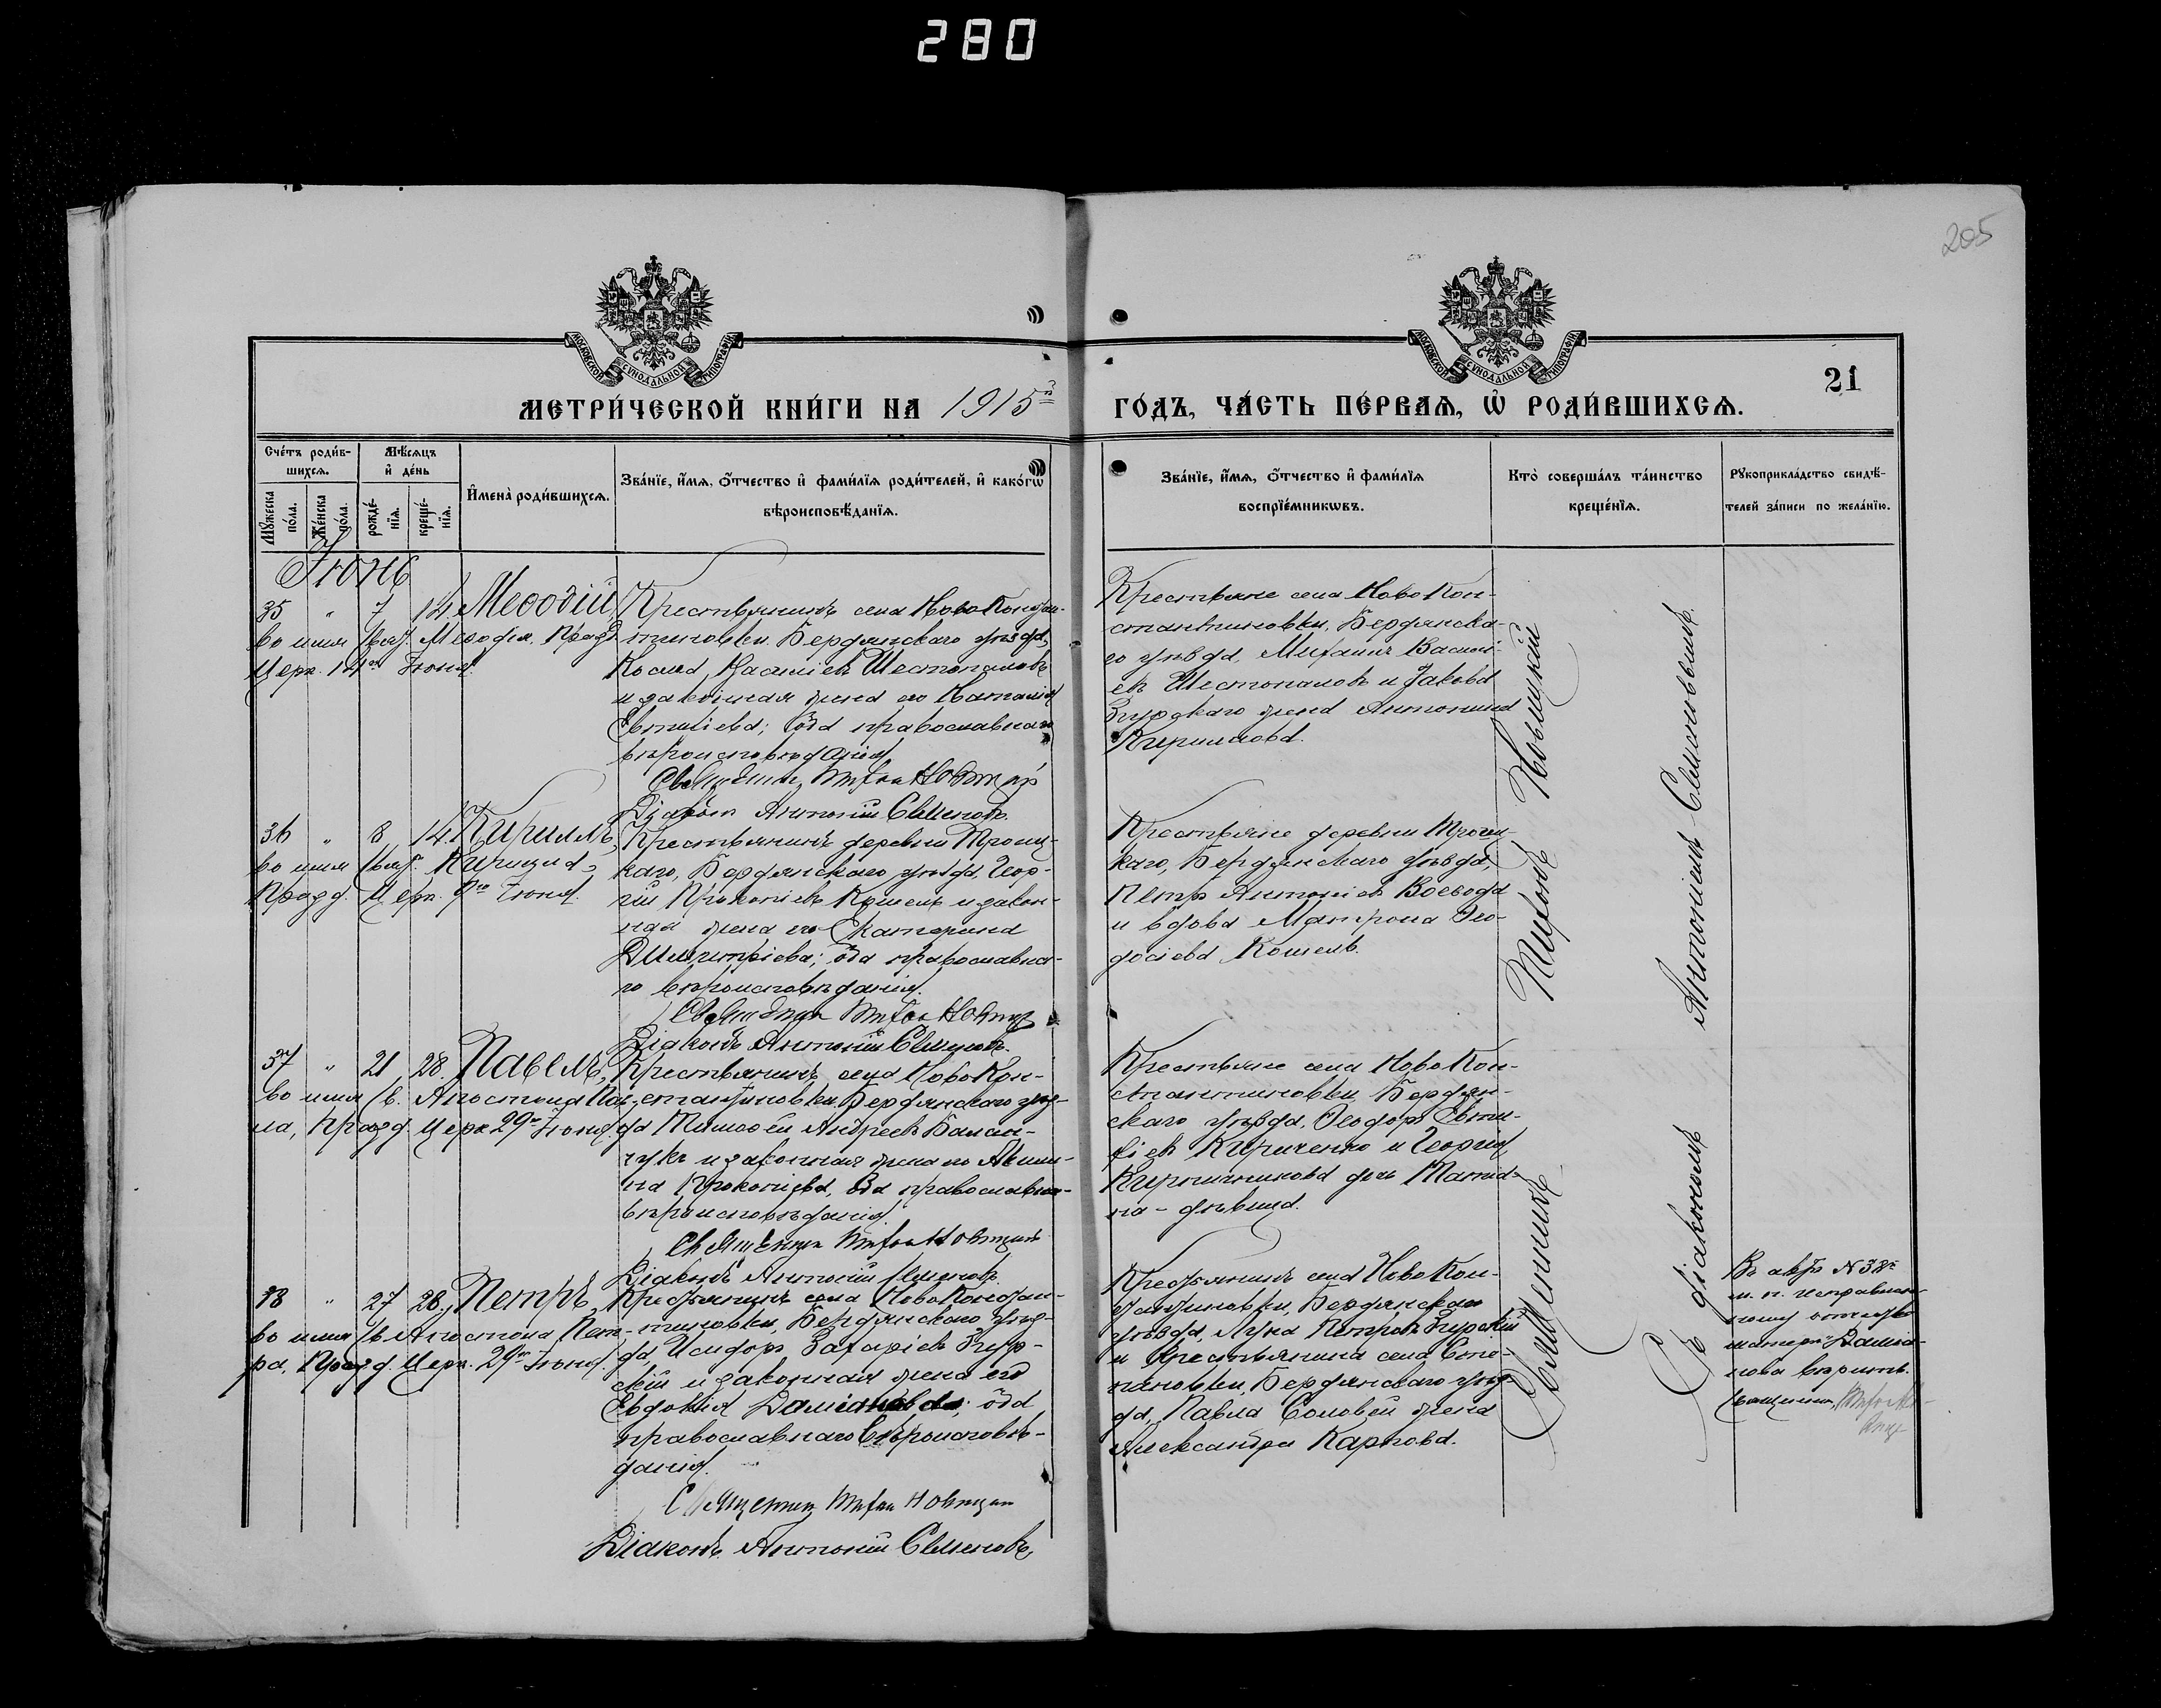 280
205
МОСКОВСКОЙ СѴНОДАЛЬНОЙ ТИПОГРАФІИ
МОСКОВСКОЙ СѴНОДАЛЬНОЙ ТИПОГРАФІИ
21
МЕТРИ́ЧЕСКОЙ КНИ́ГИ НА 1915й
ГО́ДЪ, ЧА́СТЬ ПЕ́РВАѦ, Ѡ҆ РОДИ́ВШИХСѦ.
Сче́тъ роди́в-
шихсѧ.
Мꙋжеска по́ла.
Же́нска по́ла.
Мѣ́сѧцъ
и҆ де́нь
рожде́-
нїѧ.
креще́-
нїѧ.
И҆мена̀ роди́вшихсѧ.
Зва́нїе, и҆́мѧ, о҆́тчество и҆ фами́лїѧ роди́телей, и҆ како́гѡ
вѣроисповѣ́данїѧ.
Зва́нїе, и҆́мѧ, о҆́тчество и҆ фами́лїѧ
воспрїе́мникѡвъ.
Кто̀ соверша́лъ та́инство
креще́нїѧ.
Рꙋкоприкла́дство свидѣ́-
телей за́писи по жела́нїю.
Іюнь
35 " 7 14 Меѳодій,
во имя Свят. Меѳодія. Празд.
Церк. 14го Іюня.
Крестьянинъ села НовоКонстан-
тиновки Бердянскаго уѣзда,
Косма Василіевъ Шестопаловъ
и законная жена его Наталія
Евтиліева; Оба православнаго
вѣроисповѣданія.
Священникъ Тихонъ Новицкій
Діаконъ Антоній Семеновъ.
Крестьяне села НовоКон-
стантиновки, Бердянска-
го уѣзда, Михаилъ Василі-
евъ Шестопаловъ и Іакова
Згурскаго жена Антонина
Кириллова.
36 " 8 14. Кириллъ,
во имя Свят. Кирилла,
Празд. Церк. 9го Іюня.
Крестьянинъ деревни Троиц-
каго, Бердянскаго уѣзда, Геор-
гій Прокопіевъ Кошель и закон-
ная жена его Екатерина
Димитріева; оба православна-
го вѣроисповѣданія.
Священникъ Тихонъ Новицкій
Діаконъ Антоній Семеновъ.
Крестьяне деревни Троиц-
каго, Бердянскаго уѣзда,
Петръ Антоніевъ Воевода
и вдова Матрона Ѳео-
досіева Кошель.
37 " 21 28. Павелъ,
во имя Св. Апостола Пав-
ла, Празд. Церк. 29го Іюня.
Крестьянинъ села НовоКон-
стантиновки Бердянскаго уѣз-
да Тимоѳей Андреевъ Балан-
чукъ и законная жена его Акили-
на Прокопіева, Оба православнаго
вѣроисповѣданія.
Священникъ Тихонъ Новицкій
Діаконъ Антоній Семеновъ.
Крестьяне села НовоКон-
стантиновки Бердян-
скаго уѣзда, Ѳеодоръ Евти-
хіевъ Кириченко и Георгія
Кирпичникова дочь Татіа-
на - дѣвица.
38 " 27 28. Петръ,
во имя Св. Апостола Пет-
ра, Празд. Церк. 29го Іюня.
Крестьянинъ села НовоКонстан-
тиновки, Бердянскаго уѣз-
да Исидоръ Захаріевъ Згур-
скій и законная жена его
Евдокія Даміанова; оба
православнаго вѣроисповѣ-
данія.
Священникъ Тихонъ Новицкій
Діаконъ Антоній Семеновъ
Крестьянинъ села НовоКон-
стантиновки, Бердянскаго
уѣзда, Лука Петровъ Згурскій
и крестьянина села Степа-
новки, Бердянскаго уѣз-
да, Павла Соловей жена
Александра Карпова.
Священникъ Тихонъ Новицкій
Съ діакономъ Антоніемъ Семеновымъ.
Въ актѣ №38мъ
м. п. исправлен-
ному отчеству
матери „Даміа-
нова“ вѣрить.
Священникъ Тихонъ Но-
виц